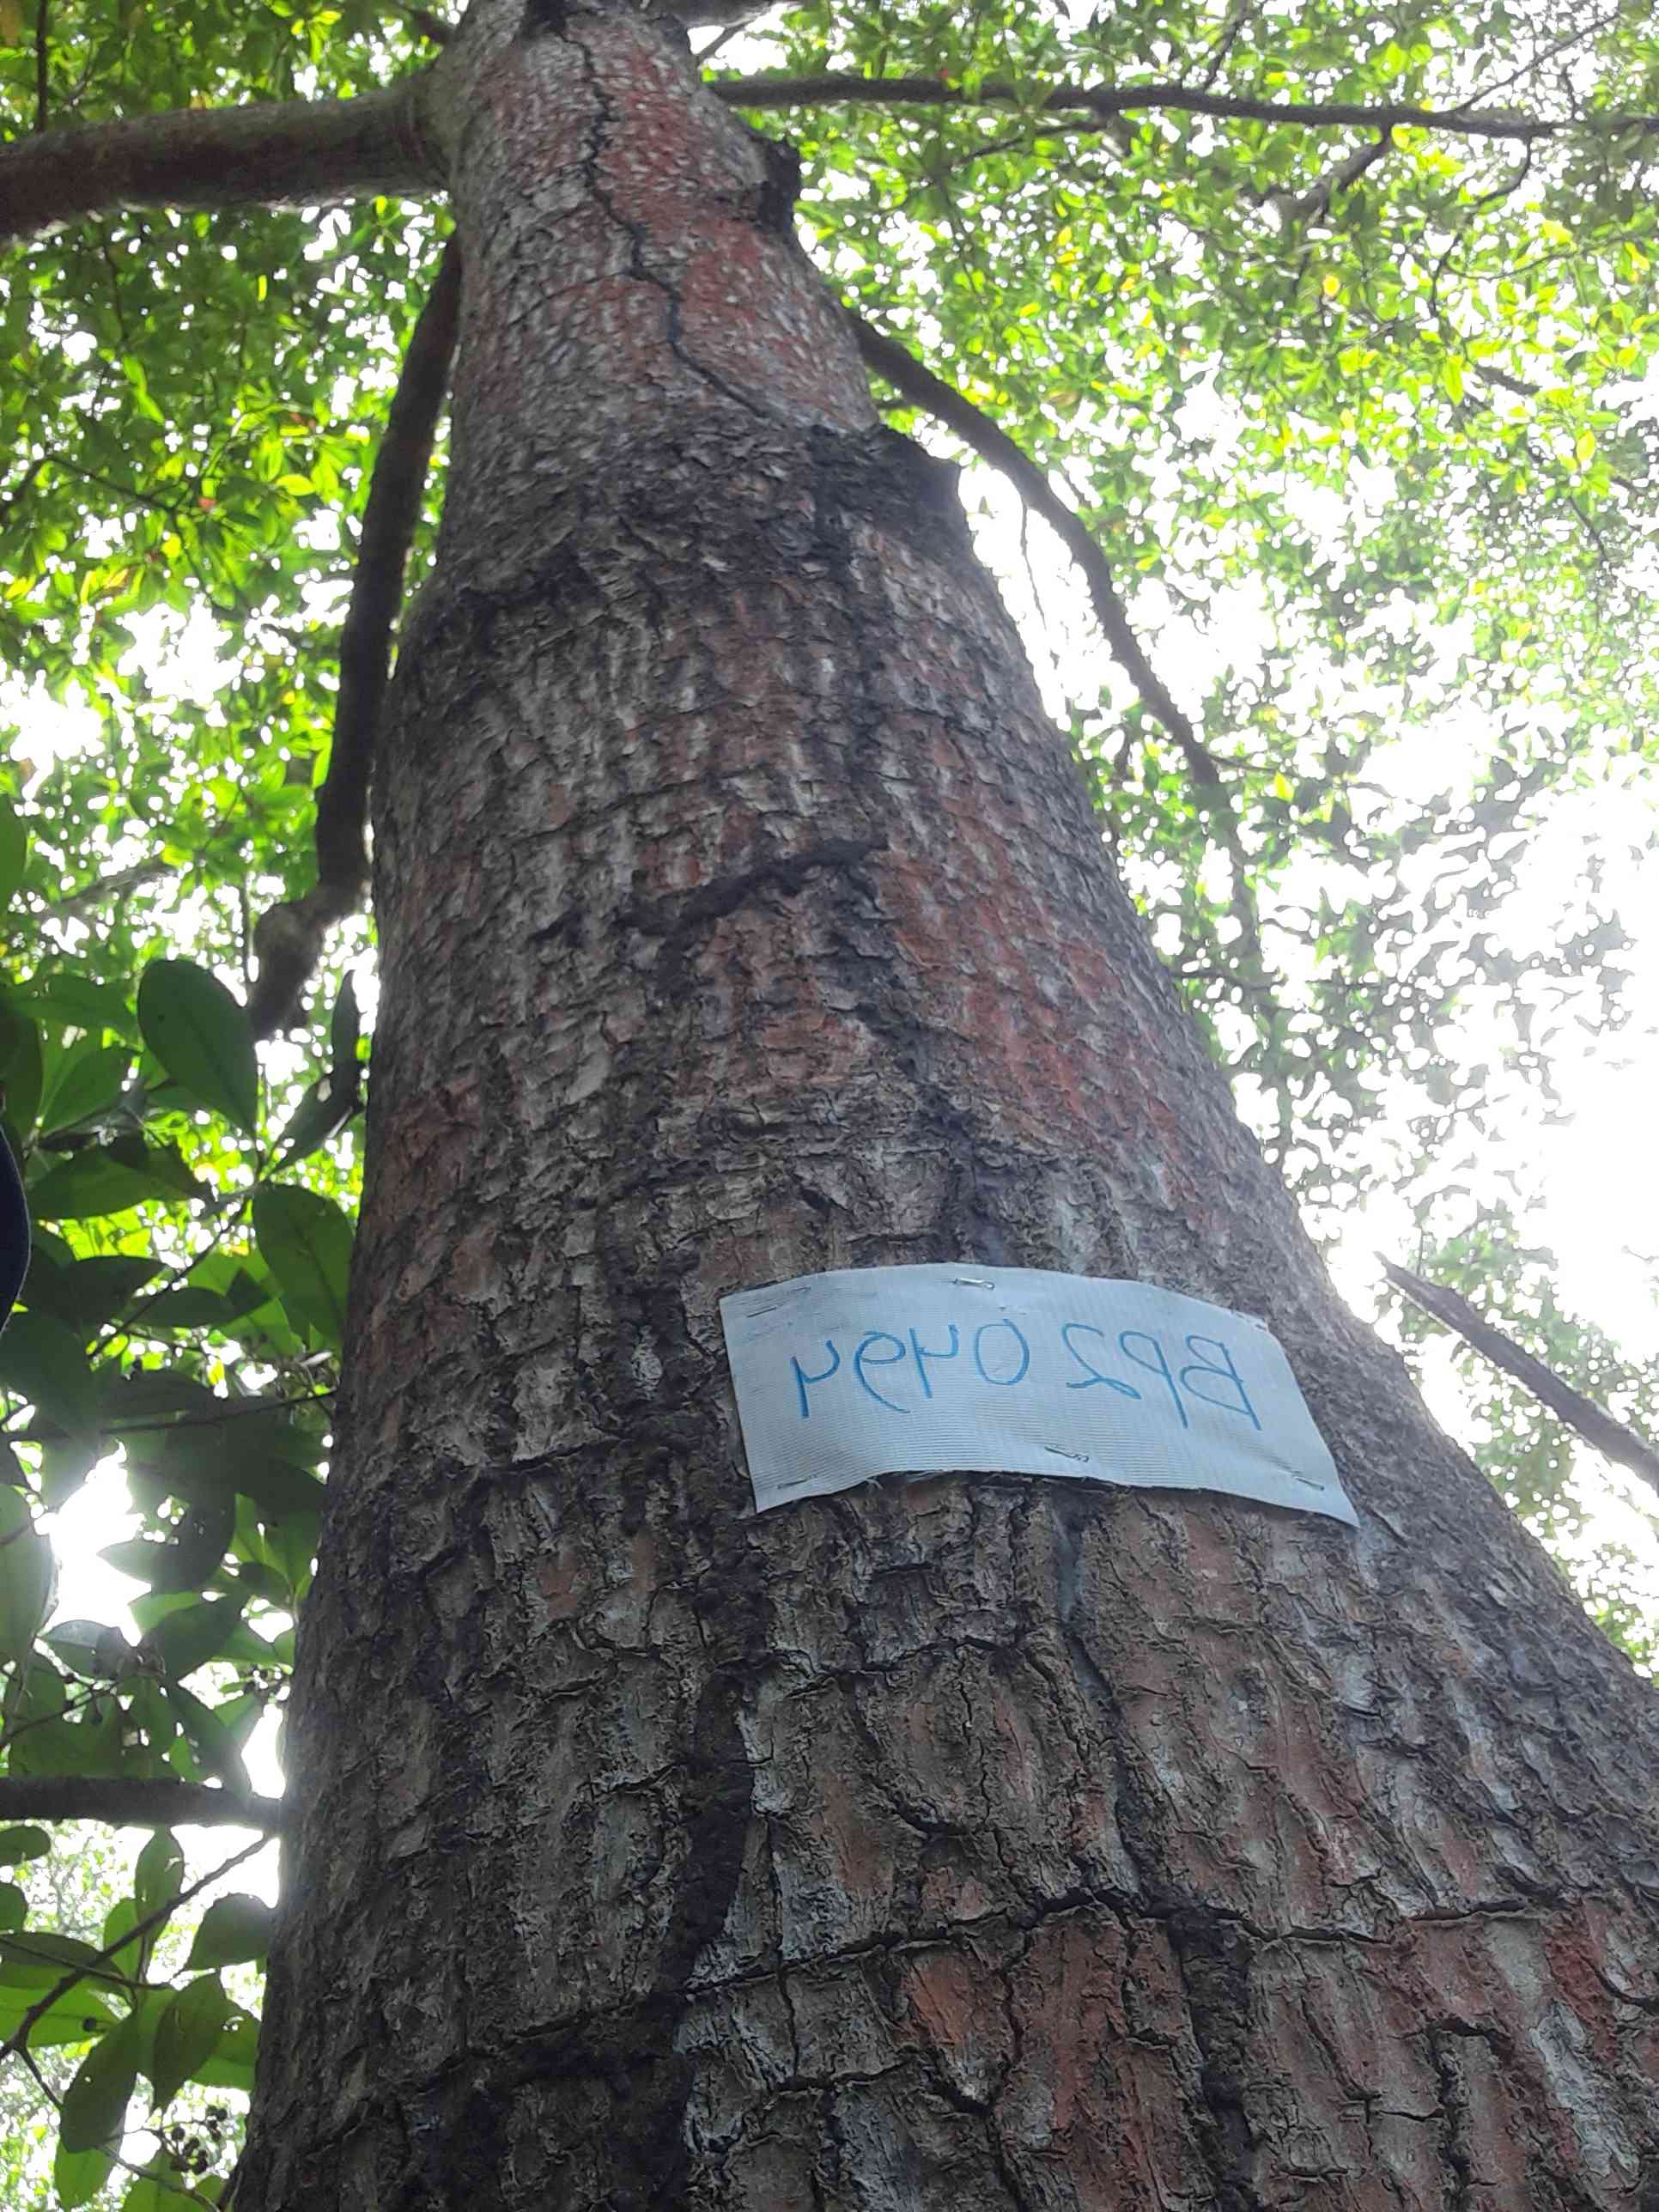 Bp2 0494